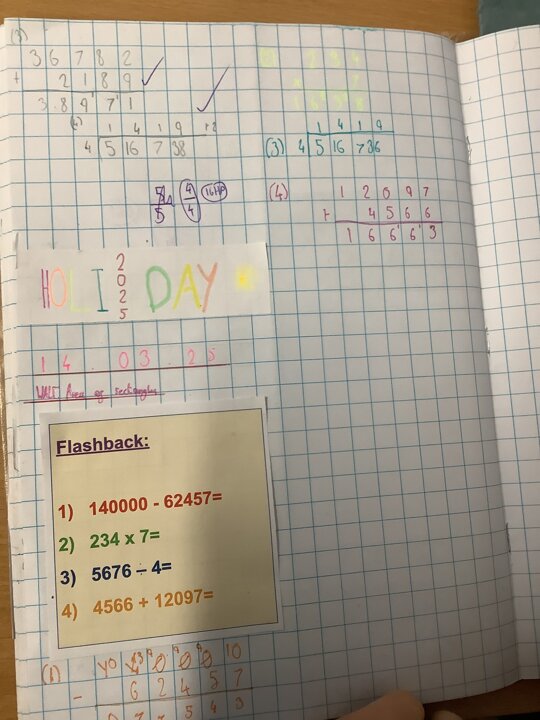 3 6 7 8 2
+ 2 1 8 9
3 8 9 7 1
1 4 1 9 r2
4 5 16 7 38
4
4
HOLI 2025 DAY
14.03.25
WALT: Area of rectangles
Flashback:
1) 140000 - 62457=
2) 234 x 7=
3) 5676 ÷ 4=
4) 4566 + 12097=
(1)
- 6 2 4 5 7
5 4 3
2 3 4
x 7
1 6 3 8
1 4 1 9
(3) 4 5 16 7 36
(4) 1 2 0 9 7
+ 4 5 6 6
1 6 6 6 3